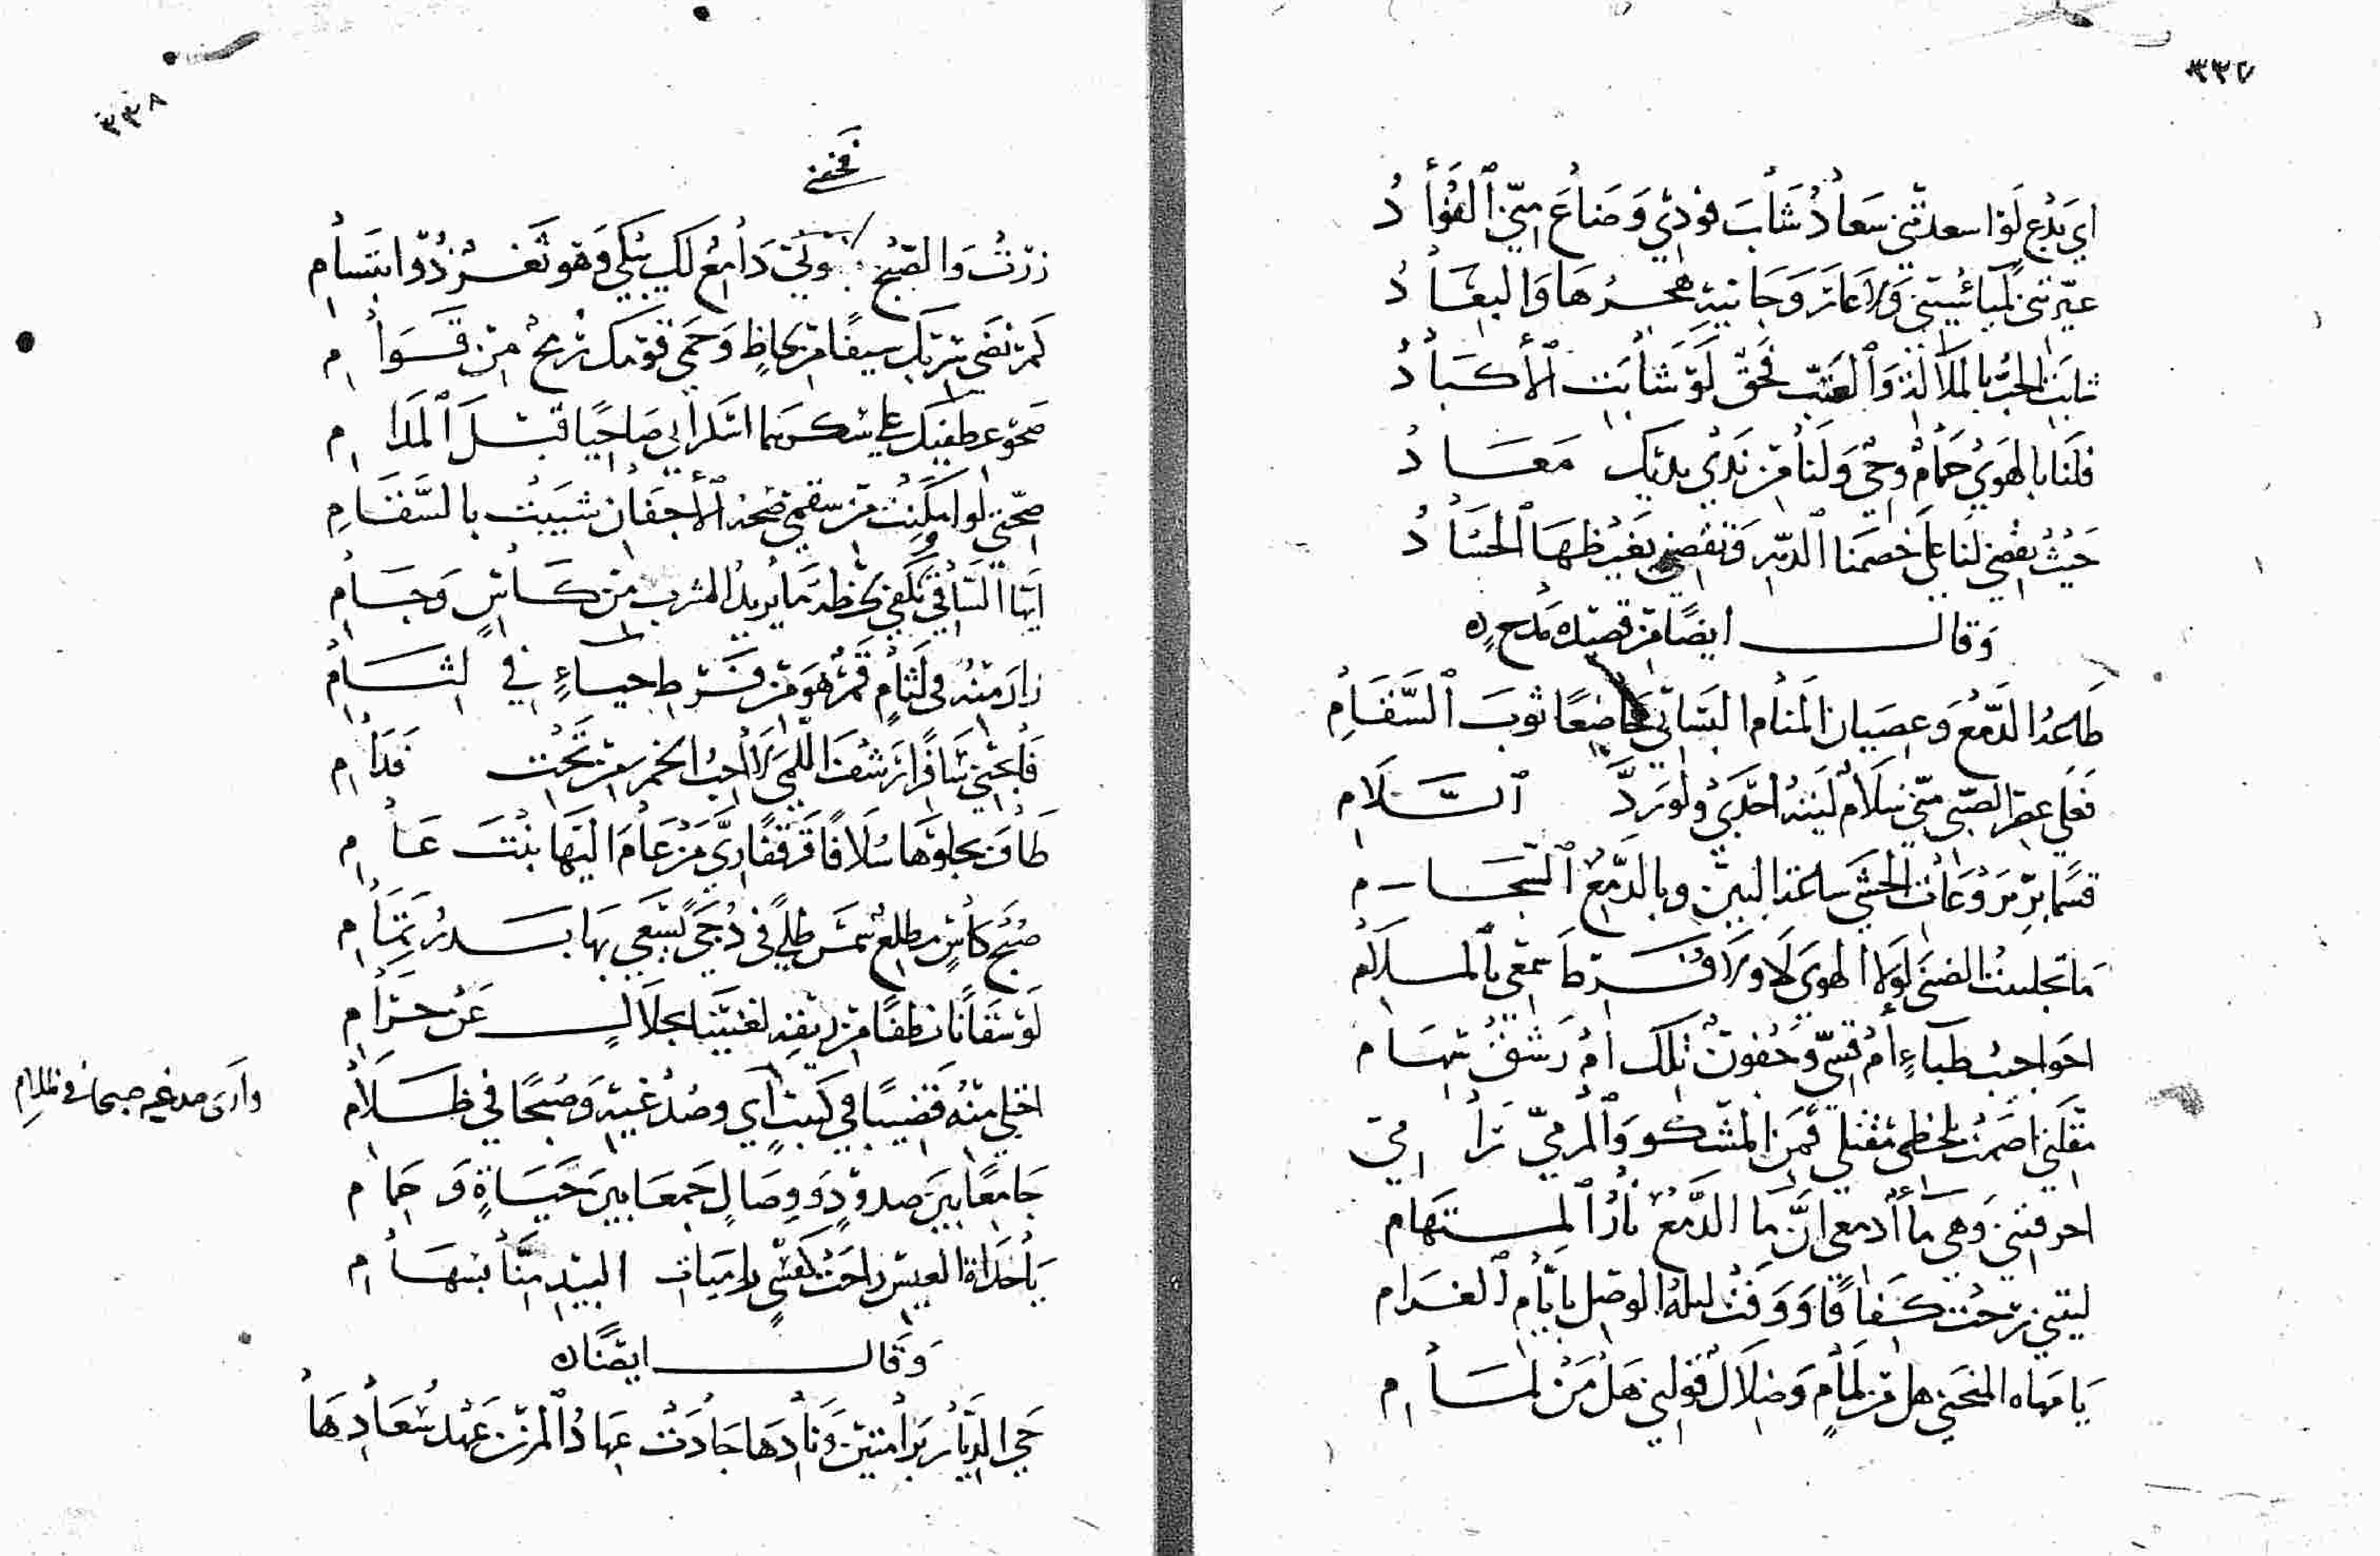 ٣٣٧
اي بدع لو اسعدتني سعاد شاب فودي وضاع مني الفؤاد
عيرتني لما ولا عار وجانيه هجرها والبعاد
شابت الحب بالملالة والعتب فحق لو شابت الأكباد
فلنا بالهوى حمام وحي ولنا من ندى يديك معاد
حيث يقضي لنا على خصمنا الدهر وتقضي بغيظها الحساد
وقال ايضا من قصيدة مدح
طاعة الدمع وعصيان المنام البساني خاضعا ثوب السقام
فعلى عصر الصبى مني سلام ليته احدى ولو رد السلام
قسما بروعات الحشى ساعة البين وبالدمع السجام
ما تجلببت الضنى لولا الهوى لا ولا قرط سمعي بالملام
احواجب ظباء أم قسي وجفون تلك ام رشق سهام
مقلتي اصمت بلحظي مقتلي فمن المشكو والمرمي رامي
احرقتني وهي ما أدمعي ان ما الدمع نار المستهام
ليتني رحت كفافا ووفت ليلة الوصل بايام الغرام
يا مهاة المنحنى هل من لمام وضلال قولتي هل من لمام
٣٣٨
زرت والصبح ولي دامع لك يبكي وهو ثغر ذو ابتسام
كم نضى تربك سيفا من لحاظ وحمى قومك رمح من قوام
صحو عطفيك على سكرهما اسكراني صاحيا قبل المدام
صحتي لو امكنت من سقمي صحة الأجفان شيبت بالسقام
ايها الساقي تكفي لحظة ما يريد الشرب من كأس وجام
زار منه في لثام قمر هو من فرط حياء في لثام
فأبحني سافرا رشف اللمى لا أحب الخمر من تحت فدام
طاف يجلوها سلافا قرقفا ري من عام اليها بنت عام
صبح كأس مطلع شمس طلى في دجى يسعى بها بدر تمام
لو سقانا نطفا من ريقه لغنينا بحلال عن حرام
اجتلي منه قضيبا في كثيب أي وصدغيه وصبحا في ظلام
وارى صدغيه صبحا في ظلام
جامعا بين صدود ووصال جمعا بين حياة وحمام
يا حداة العيس راحت كقسي راميات البيد منا بسهام
وقال ايضا
حي الديار برامتين ونادها جادت عهاد المزن عهد سعادها